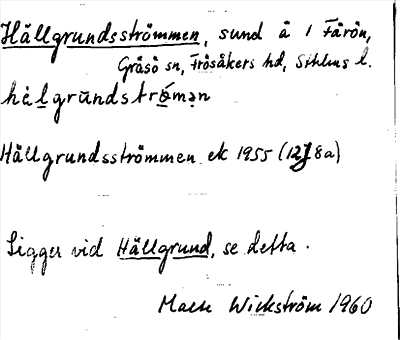 Hällgrundsströmmen, sund å 1 Fårön,
Gräsö sn, Frösåkers hd, Sthlms l.
hèlgrùndströmən
Hällgrundsströmmen ek 1955 (12J8a)
Ligger vid Hällgrund, se detta.
Wickström 1960